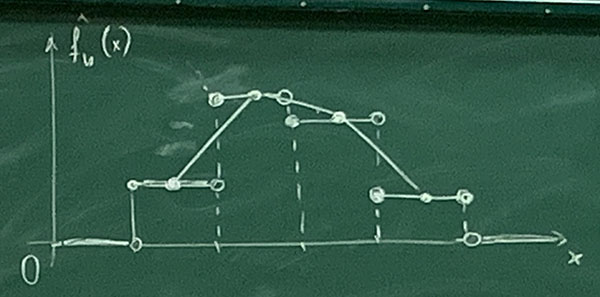 f̂ₙ(x)
0
x